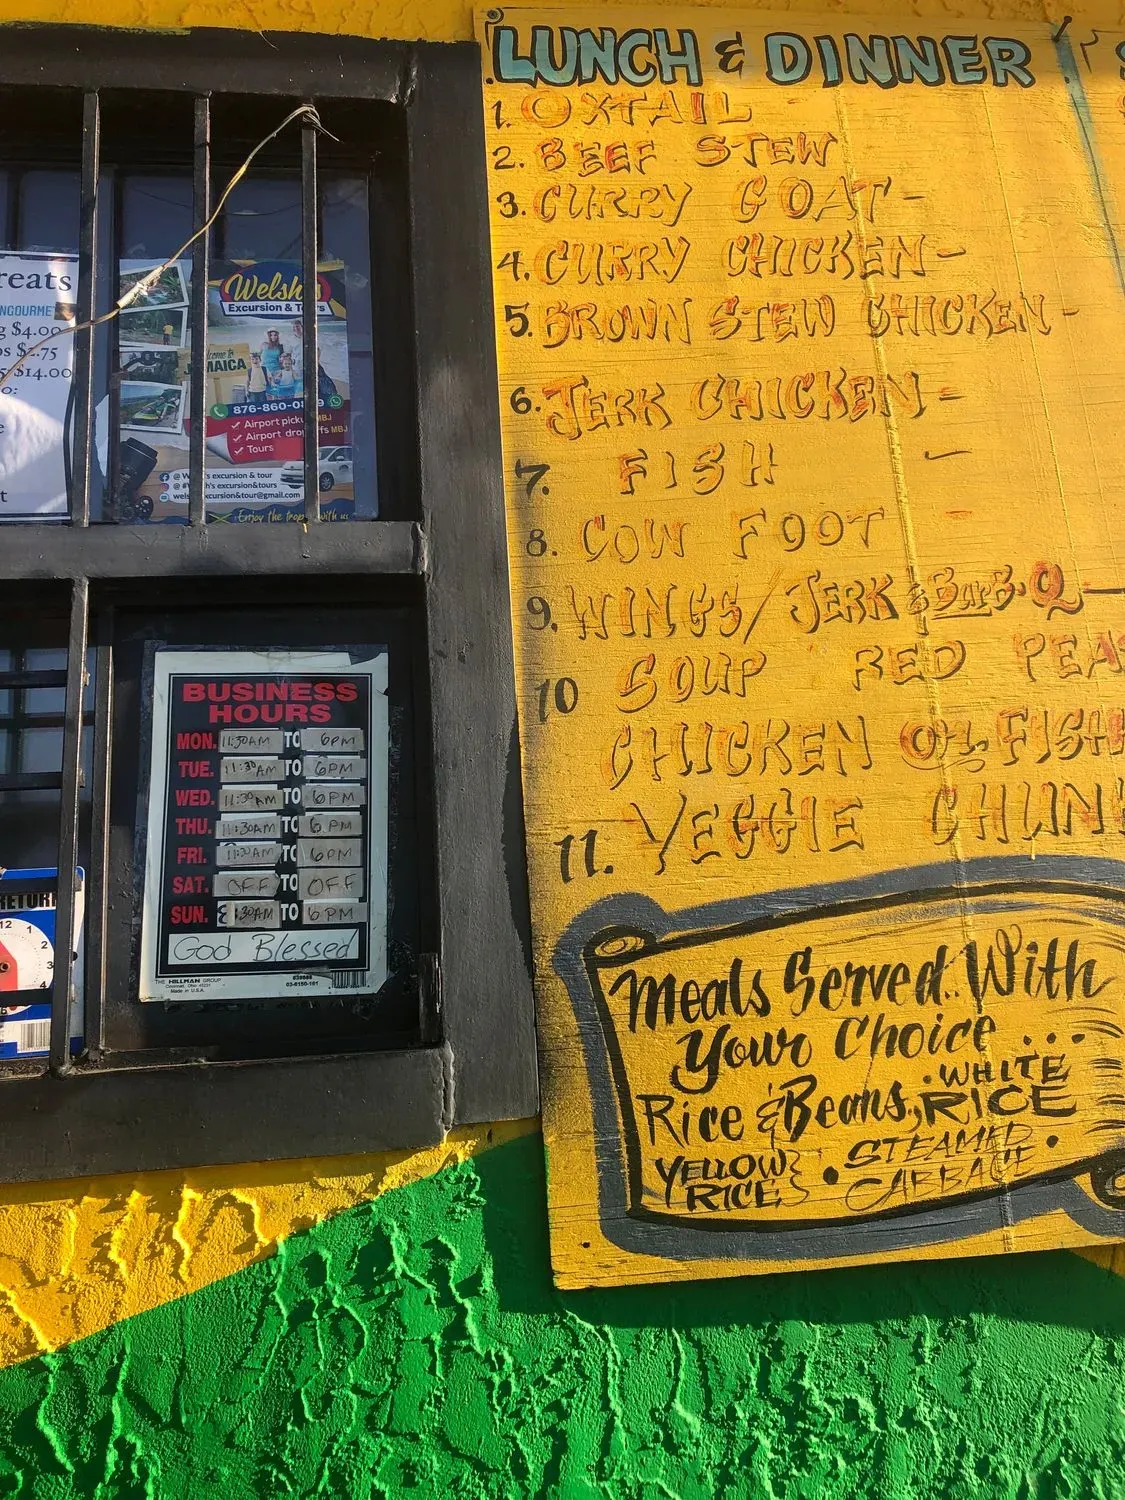 LUNCH & DINNER
1. OXTAIL -
2. BEEF STEW
3. CURRY GOAT -
4. CURRY CHICKEN -
5. BROWN STEW CHICKEN -
6. JERK CHICKEN -
7. FISH -
8. COW FOOT -
9. WINGS/JERK & BarB-Q -
10 SOUP RED PEA
CHICKEN OR FISH
11. VEGGIE CHUN
Meals Served.. With
Your Choice ...
Rice & Beans, • WHITE RICE
YELLOW RICE • STEAMED CABBAGE •
reats
NGOURME
g $4.00
ps $2.75
$14.00
o:
e
t
Welsh's
Excursion & Tours
JAMAICA
876-860-0
Airport pick MBJ
Airport drop ffs MBJ
Tours
@ We 's excursion & tour
@ # h's excursion&tours
wels xcursion&tour@gmail.com
Enjoy the trop with us
BUSINESS
HOURS
MON. 11:30AM TO 6PM
TUE. 11:30AM TO 6PM
WED. 11:30AM TO 6PM
THU. 11:30AM TO 6PM
FRI. 11:30AM TO 6PM
SAT. OFF TO OFF
SUN. 8:30AM TO 6PM
God Blessed
THE HILLMAN GROUP
Cincinnati, Ohio 45231
Made in U.S.A.
839888
03-6150-161
RETURN
12
1
2
3
4